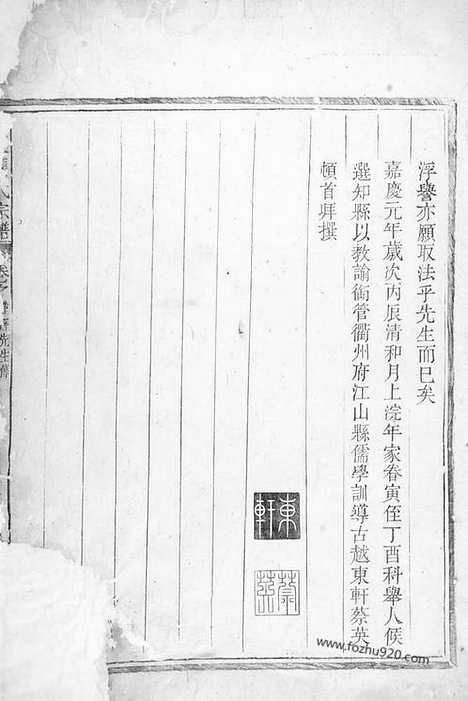 浮譽亦願取法乎先生而已矣
嘉慶元年歲次丙辰清和月上浣年家眷寅侄丁酉科舉人候
選知縣以教諭銜管衢州府江山縣儒學訓導古越東軒蔡英
頓首拜撰
東軒
氏宗譜
卷之
先生傳
www.fozhu920.com